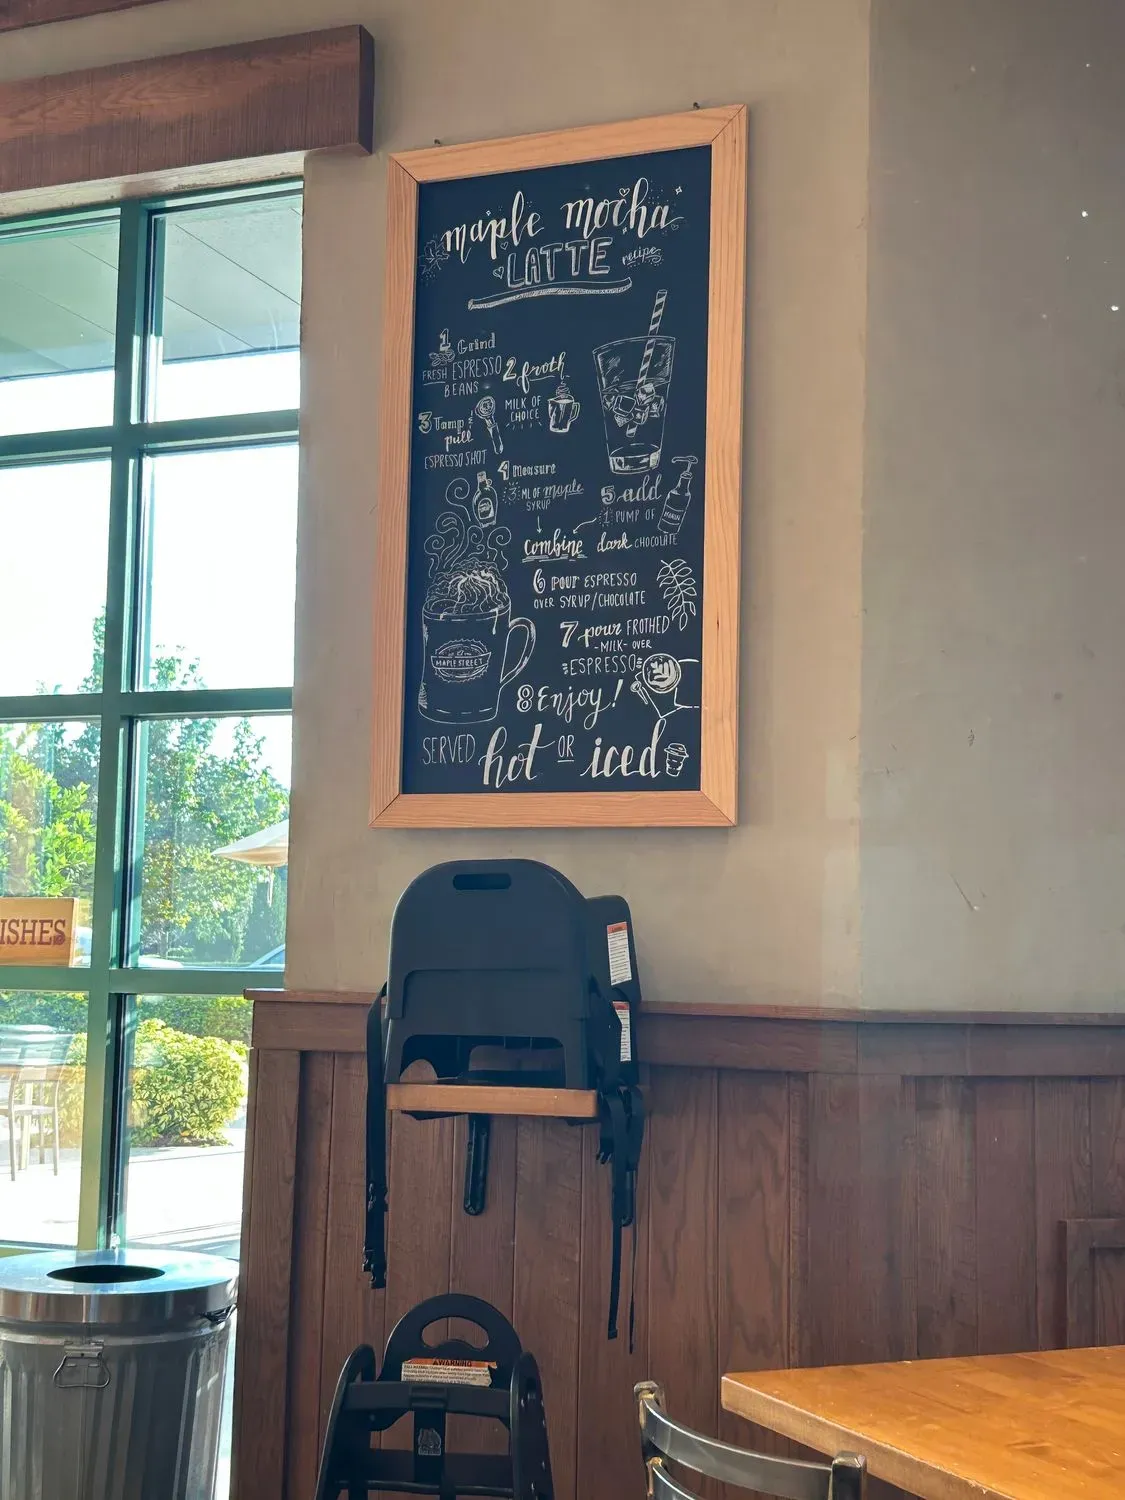 maple mocha
LATTE recipe
1 Grind
FRESH ESPRESSO
BEANS
2 froth
MILK OF
CHOICE
3 Tamp &
pull
ESPRESSO SHOT
4 Measure
3 ML OF maple
SYRUP
5 add
1 PUMP OF
dark CHOCOLATE
combine
6 pour ESPRESSO
OVER SYRUP/CHOCOLATE
7 pour FROTHED
-MILK- OVER
ESPRESSO
8 Enjoy!
MAPLE STREET
SERVED hot OR iced
ISHES
AWARNING